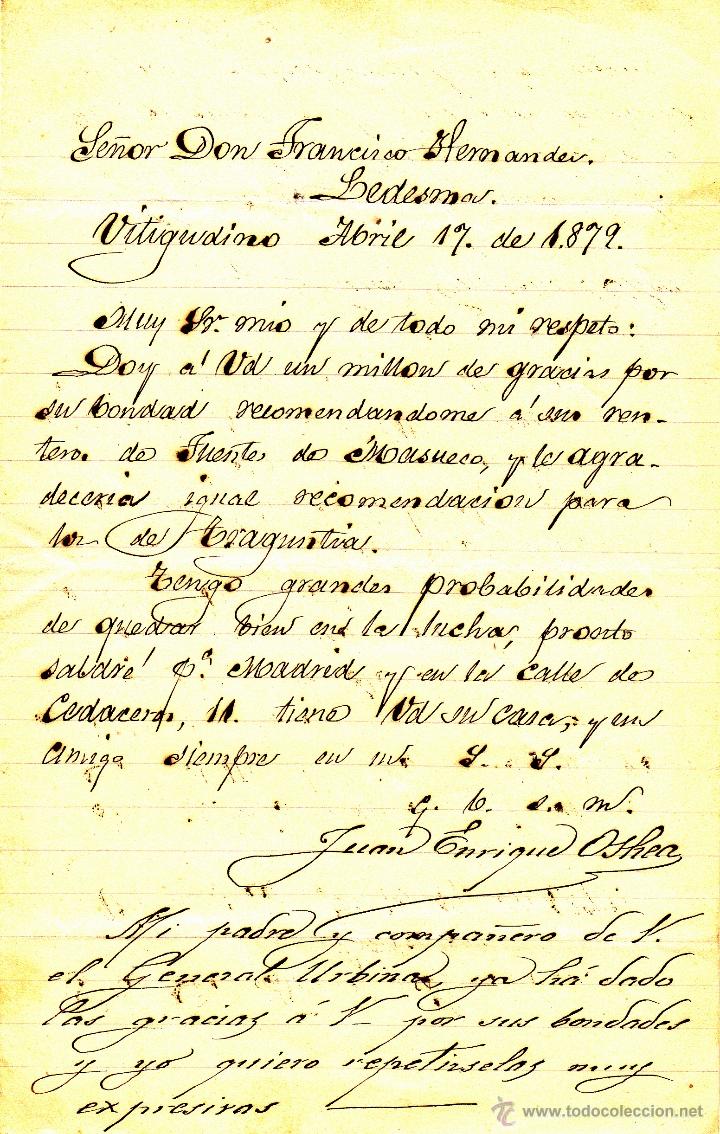 Señor Don Francisco Hernandez.
Ledesma.
Vitigudino Abril 17. de 1.879.
Muy Sr. mio y de todo mi respeto:
Doy á Vd un millon de gracias por
su bondad recomendandome á su ren-
tero de Fuentes de Masueco, y le agra-
deceria igual recomendacion para
los de Traguntia.
Tengo grandes probabilidades
de quedar bien en la lucha, pronto
saldré pª Madrid y en la calle de
Cedaceros, 11. tiene Vd su casa, y un
amigo siempre en su S. S.
q. b. s. m.
Juan Enrique Oshea
Mi padre y compañero de V.
el General Urbina, ya há dado
las gracias á V por sus bondades
y yo quiero repetirselas muy
expresivas
www.todocoleccion.net